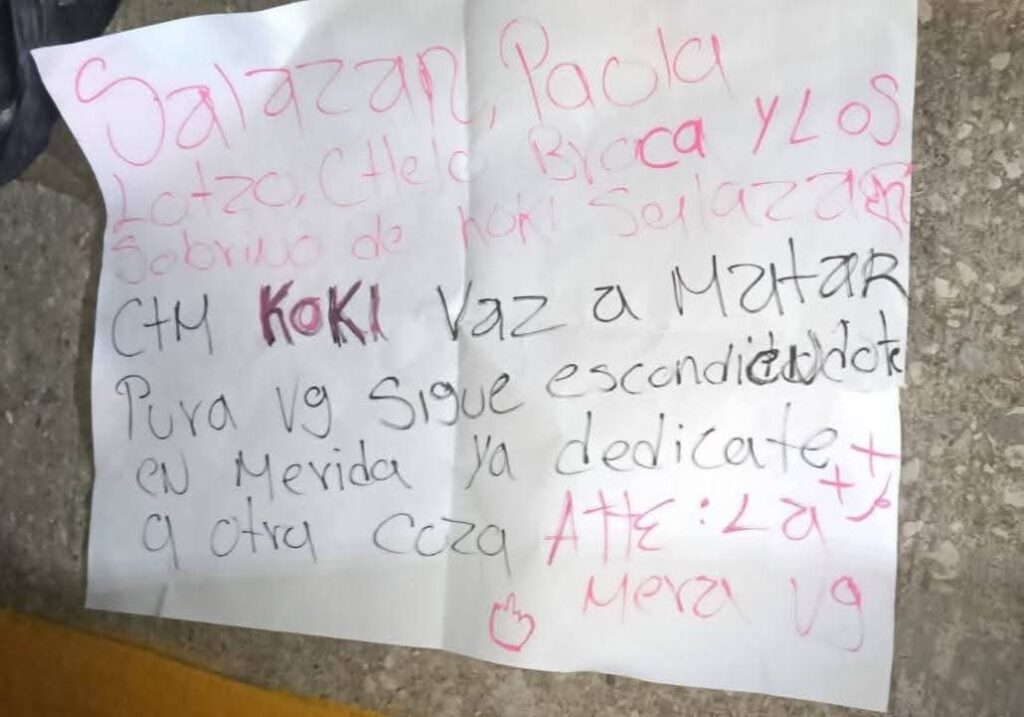 Salazar, Paola
Lotzo, Chelo Braca Y LOS
Sobrino de Koki Salazar
CTM KOKI Vaz a MatAR
Pura vg Sigue escondiendote
en Merida ya dedicate
a otra coza AttE: La
Mera vg